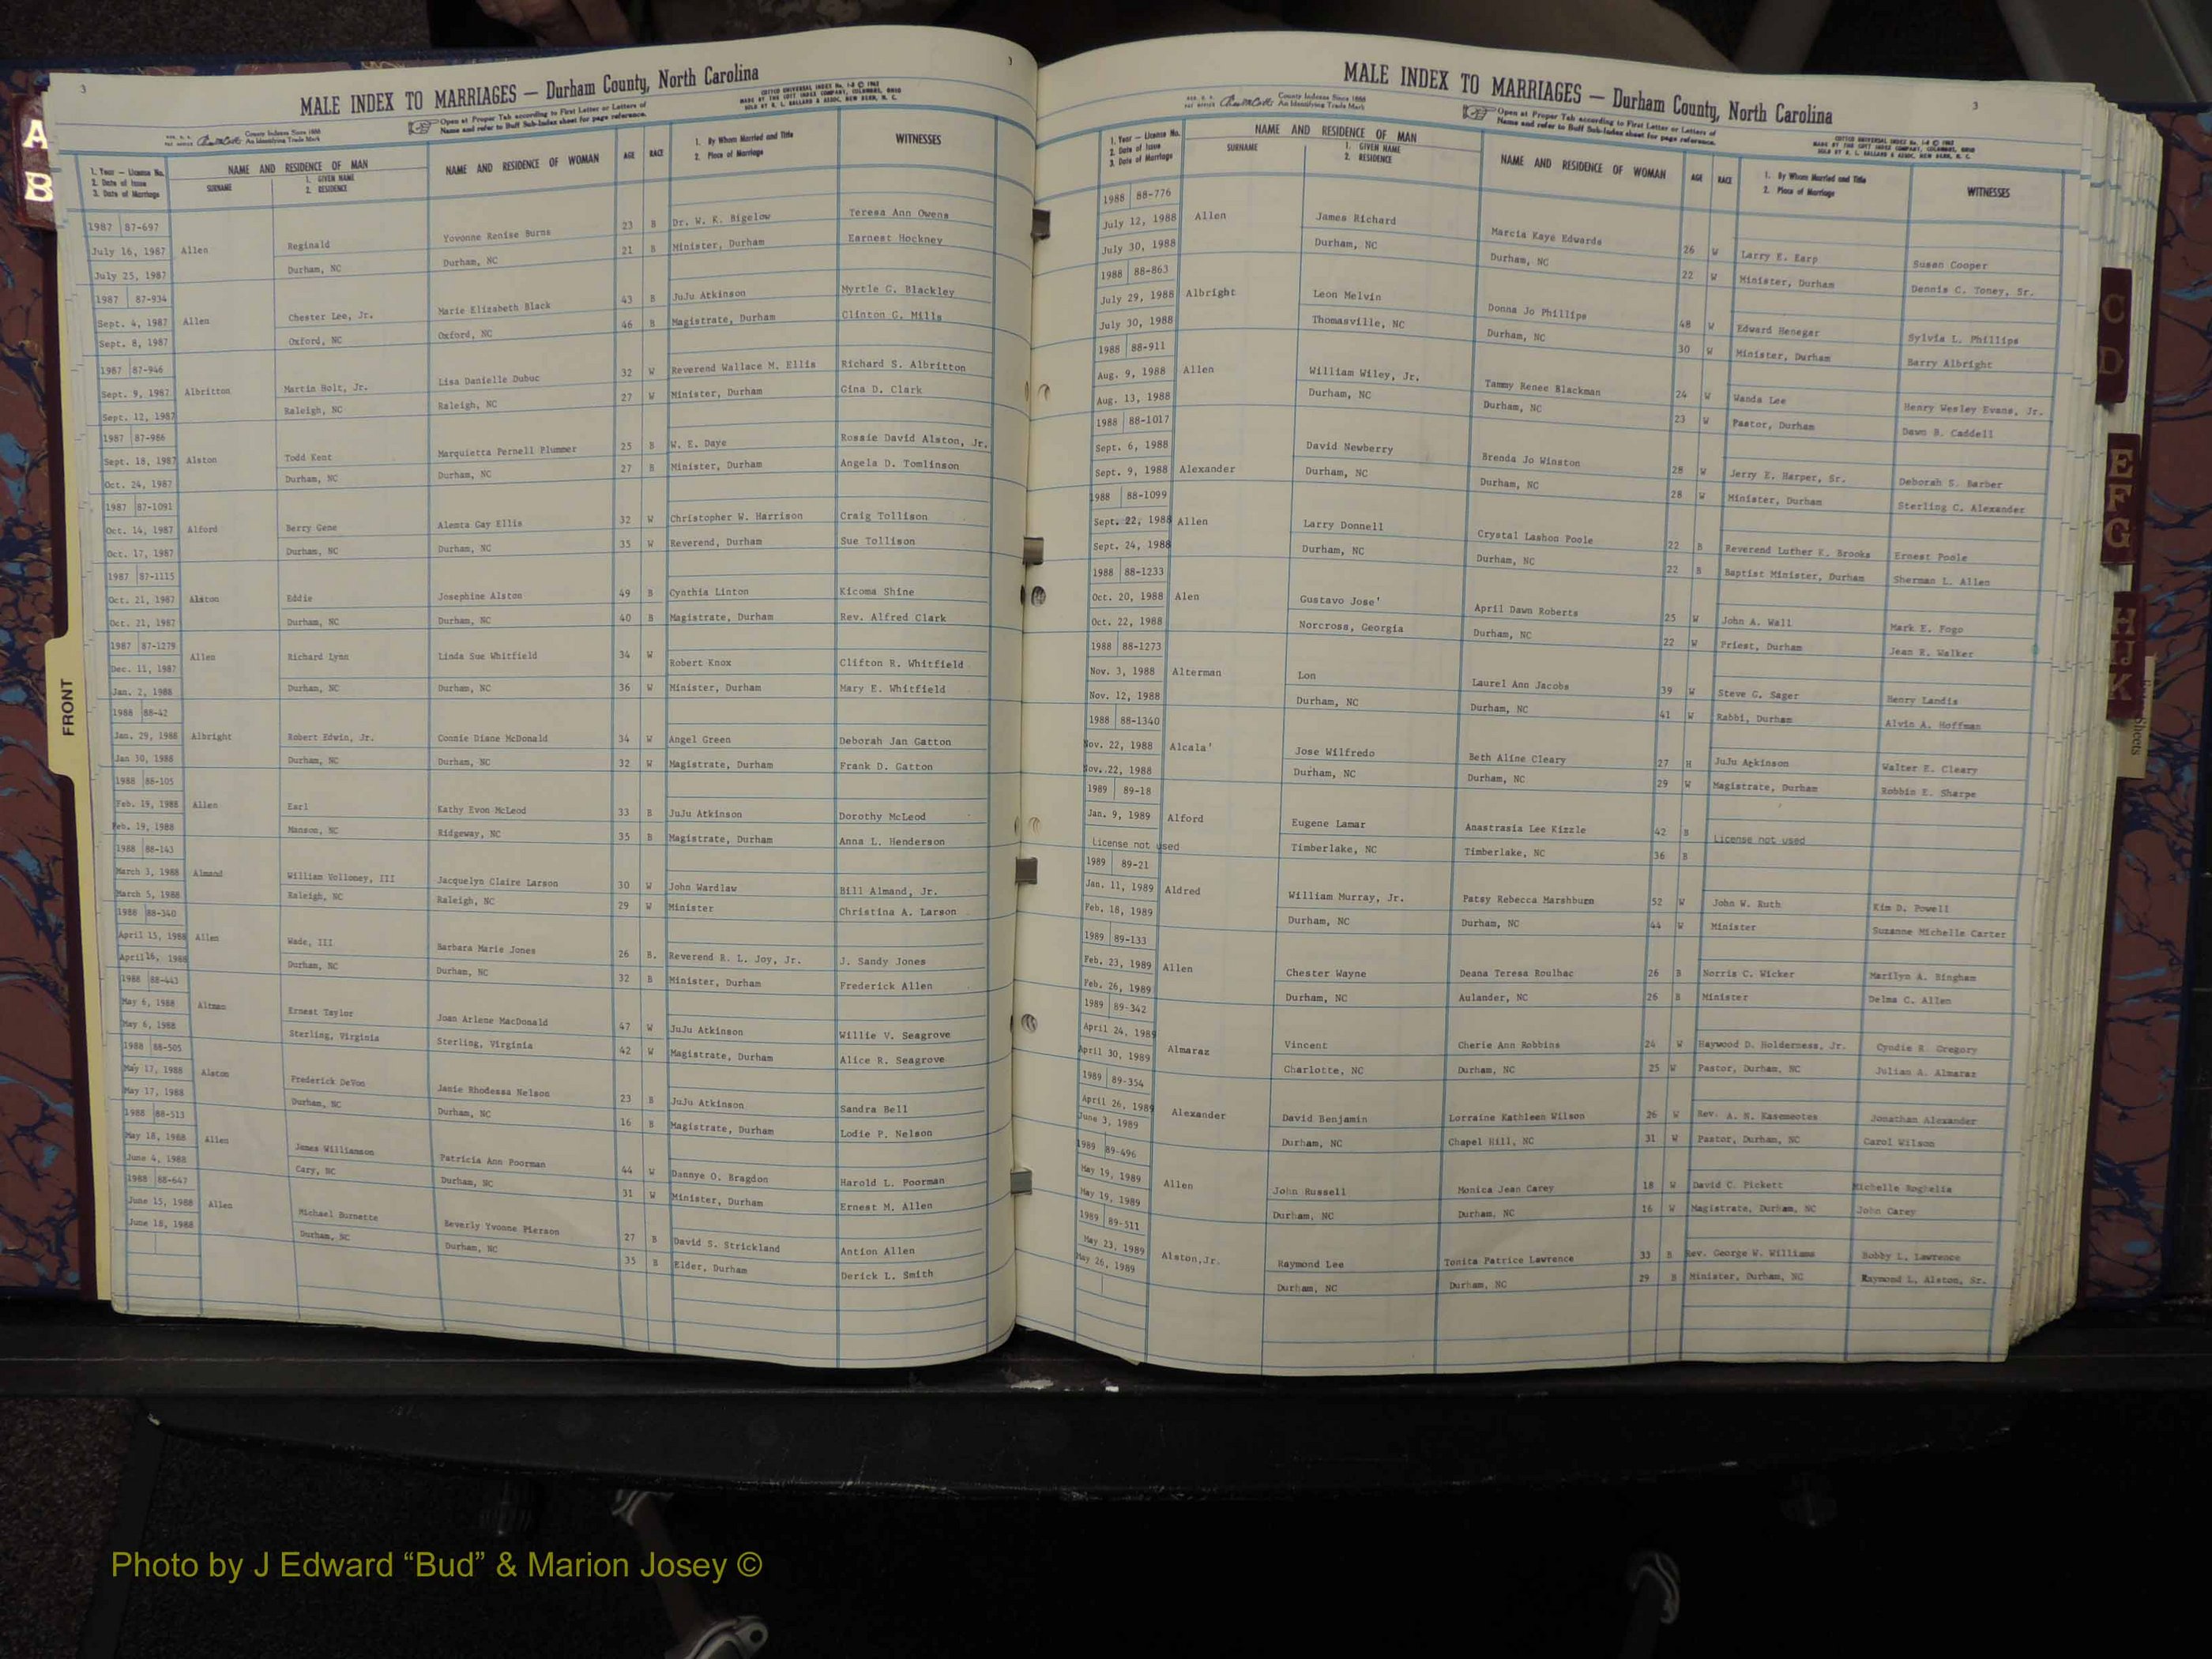 3
MALE INDEX TO MARRIAGES — Durham County, North Carolina
Open at Proper Tab according to First Letter or Letters of
Name and refer to Buff Sub-Index sheet for page reference.
County Indexes Since 1888
An Identifying Trade Mark
1. Year — License No.
2. Date of Issue
3. Date of Marriage
NAME AND RESIDENCE OF MAN
SURNAME
1. GIVEN NAME
2. RESIDENCE
NAME AND RESIDENCE OF WOMAN
AGE
RACE
1. By Whom Married and Title
2. Place of Marriage
WITNESSES
1987 87-697 23 B Dr. W. K. Bigelow Teresa Ann Owens
July 16, 1987 Allen Reginald Yovonne Renise Burns 21 B Minister, Durham Earnest Hockney
July 25, 1987 Durham, NC Durham, NC
1987 87-934 43 B JuJu Atkinson Myrtle G. Blackley
Sept. 4, 1987 Allen Chester Lee, Jr. Marie Elizabeth Black 46 B Magistrate, Durham Clinton G. Mills
Sept. 8, 1987 Oxford, NC Oxford, NC
1987 87-946 32 W Reverend Wallace M. Ellis Richard S. Albritton
Sept. 9, 1987 Albritton Martin Holt, Jr. Lisa Danielle Dubuc 27 W Minister, Durham Gina D. Clark
Sept. 12, 1987 Raleigh, NC Raleigh, NC
1987 87-986 25 B W. E. Daye Rossie David Alston, Jr.
Sept. 18, 1987 Alston Todd Kent Marquietta Pernell Plummer 27 B Minister, Durham Angela D. Tomlinson
Oct. 24, 1987 Durham, NC Durham, NC
1987 87-1091 32 W Christopher W. Harrison Craig Tollison
Oct. 14, 1987 Alford Berry Gene Alenta Gay Ellis 35 W Reverend, Durham Sue Tollison
Oct. 17, 1987 Durham, NC Durham, NC
1987 87-1115 49 B Cynthia Linton Kicoma Shine
Oct. 21, 1987 Alston Eddie Josephine Alston 40 B Magistrate, Durham Rev. Alfred Clark
Oct. 21, 1987 Durham, NC Durham, NC
1987 87-1279 34 W Robert Knox Clifton R. Whitfield
Dec. 11, 1987 Allen Richard Lynn Linda Sue Whitfield
Jan. 2, 1988 Durham, NC Durham, NC 36 W Minister, Durham Mary E. Whitfield
1988 88-42
Jan. 29, 1988 Albright Robert Edwin, Jr. Connie Diane McDonald 34 W Angel Green Deborah Jan Gatton
Jan 30, 1988 Durham, NC Durham, NC 32 W Magistrate, Durham Frank D. Gatton
1988 88-105
Feb. 19, 1988 Allen Earl Kathy Evon McLeod 33 B JuJu Atkinson Dorothy McLeod
Feb. 19, 1988 Manson, NC Ridgeway, NC 35 B Magistrate, Durham Anna L. Henderson
1988 88-143
March 3, 1988 Almand William Volloney, III Jacquelyn Claire Larson 30 W John Wardlaw Bill Almand, Jr.
March 5, 1988 Raleigh, NC Raleigh, NC 29 W Minister Christina A. Larson
1988 88-340
April 15, 1988 Allen Wade, III Barbara Marie Jones 26 B. Reverend R. L. Joy, Jr. J. Sandy Jones
April 16, 1988 Durham, NC Durham, NC 32 B Minister, Durham Frederick Allen
1988 88-443
May 6, 1988 Altman Ernest Taylor Joan Arlene MacDonald 47 W JuJu Atkinson Willie V. Seagrove
May 6, 1988 Sterling, Virginia Sterling, Virginia 42 W Magistrate, Durham Alice R. Seagrove
1988 88-505
May 17, 1988 Alston Frederick DeVon Janie Rhodessa Nelson 23 B JuJu Atkinson Sandra Bell
May 17, 1988 Durham, NC Durham, NC 16 B Magistrate, Durham Lodie P. Nelson
1988 88-513
May 18, 1988 Allen James Williamson Patricia Ann Poorman 44 W Dannye O. Bragdon Harold L. Poorman
June 4, 1988 Cary, NC Durham, NC 31 W Minister, Durham Ernest M. Allen
1988 88-647
June 15, 1988 Allen Michael Burnette Beverly Yvonne Pierson 27 B David S. Strickland Antion Allen
June 18, 1988 Durham, NC Durham, NC 35 B Elder, Durham Derick L. Smith
3
MALE INDEX TO MARRIAGES — Durham County, North Carolina
3
County Indexes Since 1888
An Identifying Trade Mark
Open at Proper Tab according to First Letter or Letters of
Name and refer to Buff Sub-Index sheet for page reference.
1. Year — License No.
2. Date of Issue
3. Date of Marriage
NAME AND RESIDENCE OF MAN
SURNAME
1. GIVEN NAME
2. RESIDENCE
NAME AND RESIDENCE OF WOMAN
AGE
RACE
1. By Whom Married and Title
2. Place of Marriage
WITNESSES
1988 88-776
July 12, 1988 Allen James Richard Marcia Kaye Edwards 26 W Larry E. Earp Susan Cooper
July 30, 1988 Durham, NC Durham, NC 22 W Minister, Durham Dennis C. Toney, Sr.
1988 88-863
July 29, 1988 Albright Leon Melvin Donna Jo Phillips 48 W Edward Henegar Sylvia L. Phillips
July 30, 1988 Thomasville, NC Durham, NC 30 W Minister, Durham Barry Albright
1988 88-911
Aug. 9, 1988 Allen William Wiley, Jr. Tammy Renee Blackman 24 W Wanda Lee Henry Wesley Evans, Jr.
Aug. 13, 1988 Durham, NC Durham, NC 23 W Pastor, Durham Dawn B. Caddell
1988 88-1017
Sept. 6, 1988 David Newberry Brenda Jo Winston 28 W Jerry E. Harper, Sr. Deborah S. Barber
Sept. 9, 1988 Alexander Durham, NC Durham, NC 28 W Minister, Durham Sterling C. Alexander
1988 88-1099
Sept. 22, 1988 Allen Larry Donnell Crystal Lashon Poole 22 B Reverend Luther K. Brooks Ernest Poole
Sept. 24, 1988 Durham, NC Durham, NC 22 B Baptist Minister, Durham Sherman L. Allen
1988 88-1233
Oct. 20, 1988 Alen Gustavo Jose' April Dawn Roberts 25 W John A. Wall Mark E. Fogo
Oct. 22, 1988 Norcross, Georgia Durham, NC 22 W Priest, Durham Jean R. Walker
1988 88-1273
Nov. 3, 1988 Alterman Lon Laurel Ann Jacobs 39 W Steve G. Sager Henry Landis
Nov. 12, 1988 Durham, NC Durham, NC 41 W Rabbi, Durham Alvin A. Hoffman
1988 88-1340
Nov. 22, 1988 Alcala' Jose Wilfredo Beth Aline Cleary 27 H JuJu Atkinson Walter E. Cleary
Nov. 22, 1988 Durham, NC Durham, NC 29 W Magistrate, Durham Robbin E. Sharpe
1989 89-18
Jan. 9, 1989 Alford Eugene Lamar Anastrasia Lee Kizzle 42 B License not used
License not used Timberlake, NC Timberlake, NC 36 B
1989 89-21
Jan. 11, 1989 Aldred William Murray, Jr. Patsy Rebecca Marshburn 52 W John W. Ruth Kim D. Powell
Feb. 18, 1989 Durham, NC Durham, NC 44 W Minister Suzanne Michelle Carter
1989 89-133
Feb. 23, 1989 Allen Chester Wayne Deana Teresa Roulhac 26 B Norris C. Wicker Marilyn A. Bingham
Feb. 26, 1989 Durham, NC Aulander, NC 26 B Minister Delma C. Allen
1989 89-342
April 24, 1989 Almaraz Vincent Cherie Ann Robbins 24 W Haywood D. Holderness, Jr. Cyndie R. Gregory
April 30, 1989 Charlotte, NC Durham, NC 25 W Pastor, Durham, NC Julian A. Almaraz
1989 89-354
April 26, 1989 Alexander David Benjamin Lorraine Kathleen Wilson 26 W Rev. A. N. Jonathan Alexander
June 3, 1989 Durham, NC Chapel Hill, NC 31 W Pastor, Durham, NC Carol Wilson
1989 89-496
May 19, 1989 Allen John Russell Monica Jean Carey 18 W David C. Pickett Michelle
May 19, 1989 Durham, NC Durham, NC 16 W Magistrate, Durham, NC John Carey
1989 89-511
May 23, 1989 Alston, Jr. Raymond Lee Tonita Patrice Lawrence 33 B Rev. George W. Williams Bobby L. Lawrence
May 26, 1989 Durham, NC Durham, NC 29 B Minister, Durham, NC Raymond L. Alston, Sr.
A
B
FRONT
C
D
E
F
G
H
IJ
K
Sheets
Photo by J Edward “Bud” & Marion Josey ©